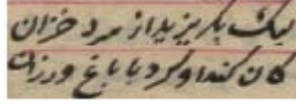 لیک بگریزید از سرد خزان
کان کند او کرد با باغ و رزان